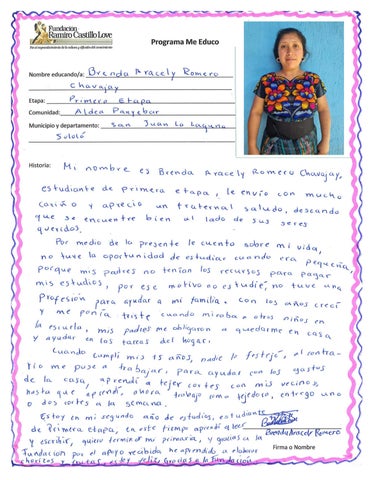 Fundación
Ramiro Castillo Love
Programa Me Educo
Nombre educando/a: Brenda Aracely Romero
Chavajay
Etapa: Primera Etapa
Comunidad: Aldea Panyebar
Municipio y departamento: San Juan La Laguna
Sololá
Historia: Mi nombre es Brenda Aracely Romero Chavajay,
estudiante de primera etapa, le envío con mucho
cariño y aprecio un fraternal saludo, deseando
que se encuentre bien al lado de sus seres
queridos.
Por medio de la presente le cuento sobre mi vida,
no tuve la oportunidad de estudiar cuando era pequeña,
porque mis padres no tenían los recursos para pagar
mis estudios, por ese motivo no estudié, no tuve una
Profesión para ayudar a mi familia. con los años crecí
y me ponía triste cuando miraba a otros niños en
la escuela, mis padres me obligaron a quedarme en casa
y ayudar en las tareas del hogar.
Cuando cumplí mis 15 años, nadie lo festejó, al contra-
rio me puse a trabajar, para ayudar con los gastos
de la casa, aprendí a tejer cortes con mis vecinos,
hasta que aprendí, ahora trabajo como tejedora, entrego uno
o dos cortes a la semana.
Estoy en mi segundo año de estudios, estudiante
de Primera etapa, en este tiempo aprendí a leer
y escribir, quiero terminar mi primaria, y gracias a la
Fundación por el apoyo recibido he aprendido a elaborar
chorizos y Gracias a la Fundación
Brenda Aracely Romero
Firma o Nombre